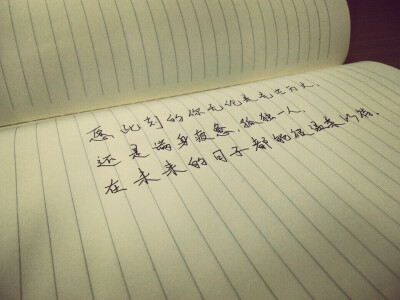 愿此刻的你无论是光芒万丈,
还是满身疲惫,孤独一人,
在未来的日子都能被温柔以待.